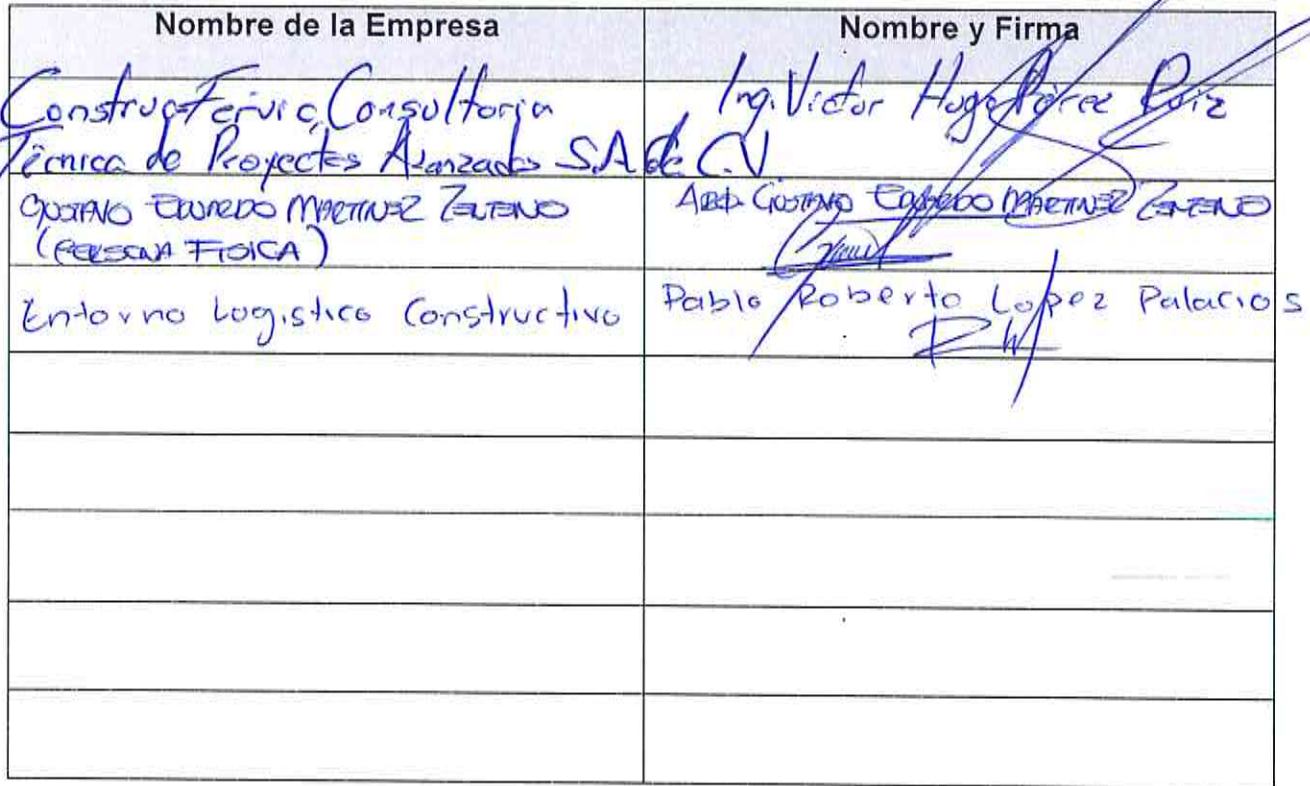 Nombre de la Empresa
Nombre y Firma
Construc Fervic, Consultoria
Técnica de Proyectos Avanzados S.A. de C.V.
Ing. Victor Hugo Pérez Ruiz
GUSTAVO EDUARDO MARTINEZ ZENTENO
(PERSONA FISICA)
ARQ. GUSTAVO EDUARDO MARTINEZ ZENTENO
Entorno Logistico Constructivo
Pablo Roberto Lopez Palacios